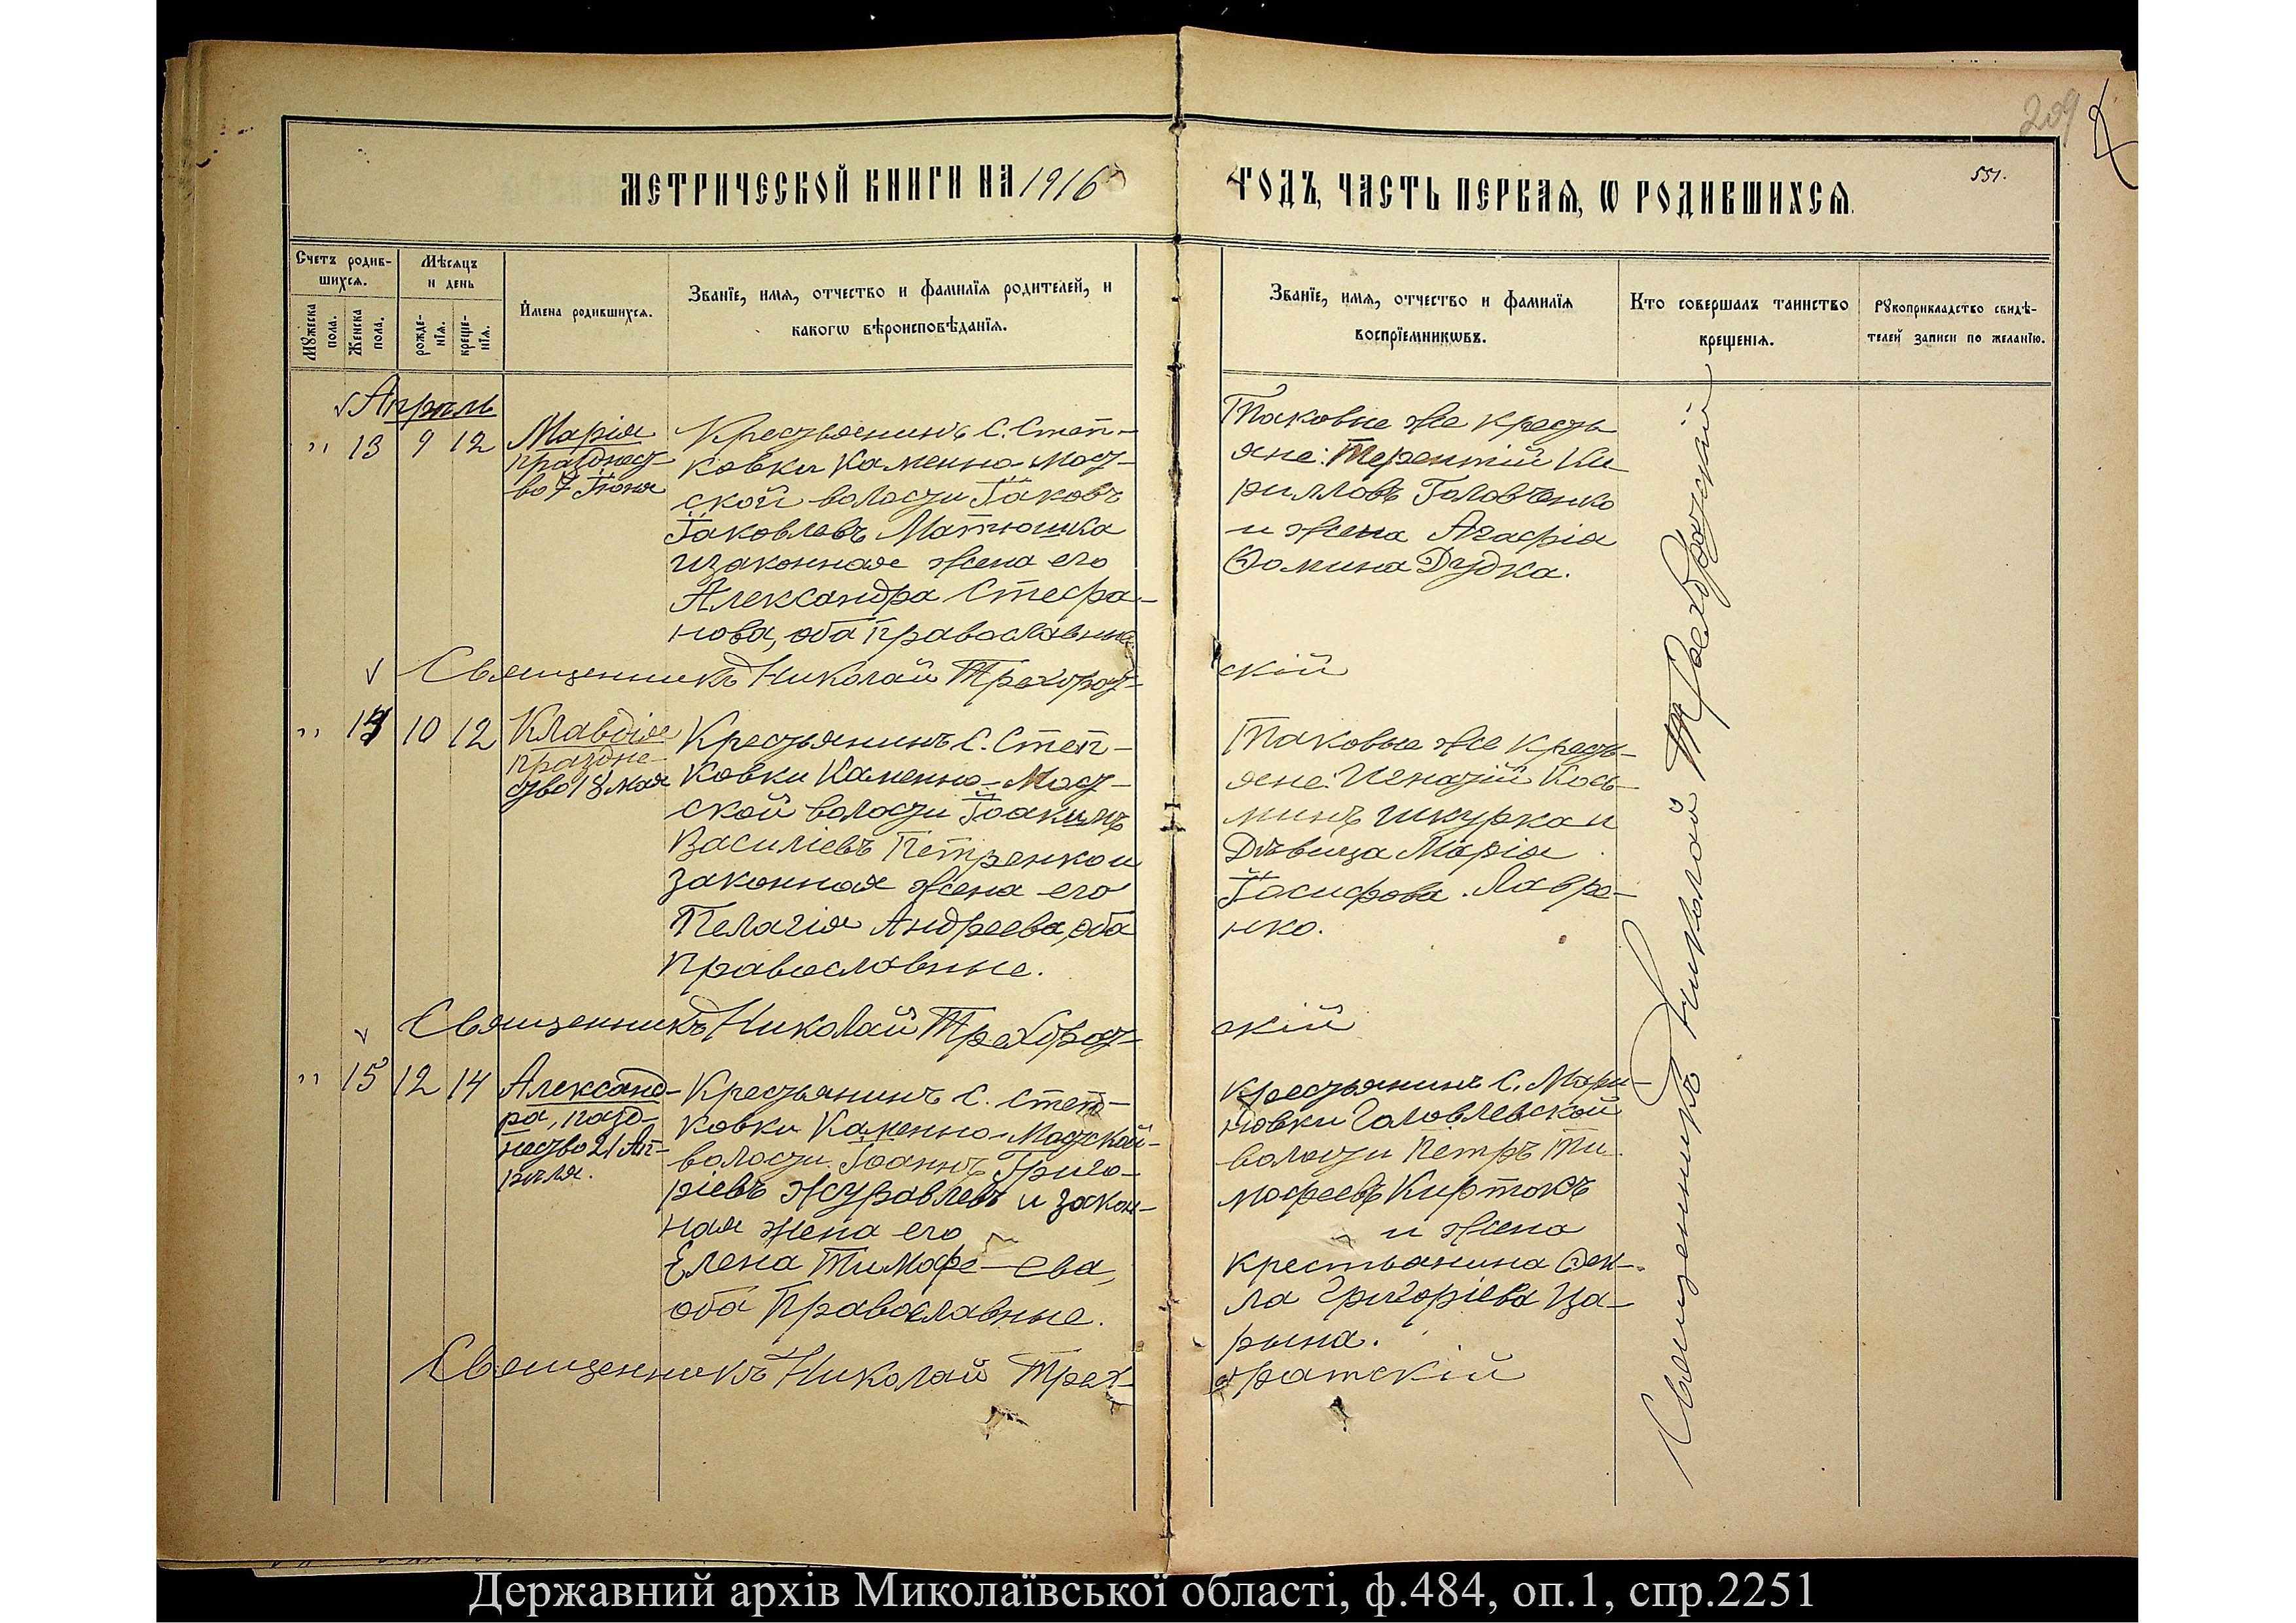 209
551.
МЕТРИЧЕСКОЙ КНИГИ НА 1916 ГОДЪ, ЧАСТЬ ПЕРВАЯ, Ѡ РОДИВШИХСЯ.
Счетъ родив-
шихся.
Мꙋжеска
пола.
Женска
пола.
Мѣсяцъ
и день
рожде-
нїя.
креще-
нїя.
Имена родившихся.
Званїе, имя, отчество и фамилїя родителей, и
какогѡ вѣроисповѣданїя.
Званїе, имя, отчество и фамилїя
воспрїемникѡвъ.
Кто совершалъ таинство
крещенїя.
Рꙋкоприкладство свидѣ-
телей записи по желанїю.
Апрѣль
„ 13 9 12
Марія
празднест-
во 7 Іюня
Крестьянинъ с. Степ-
ковки Каменно-Мост-
ской волости Іаковъ
Іаковлевъ Матюшка
и законная жена его
Александра Стефа-
нова, оба православные
Таковые же кресть
яне: Терентій Ки-
рилловъ Головченко
и жена Агафія
Ѳомина Дудка.
Священникъ Николай Трехбрат-
скій
„ 14 10 12
Клавдія
праздне-
ство 18 мая
Крестьянинъ с. Степ-
ковки Каменно-Мост-
ской волости Іоакимъ
Василіевъ Петренко и
законная жена его
Пелагія Андреева, оба
православные.
Таковые же кресть-
яне: Игнатій Кось-
минъ Шкурка и
Дѣвица Марія
Іосифова Лавре-
нко.
Священникъ Николай Трехбрат-
скій
„ 15 12 14
Александ-
ра, празд-
нество 21 Ап-
рѣля.
Крестьянинъ с. Степ-
ковки Каменно-Мостской-
волости Іоаннъ Григо-
ріевъ Журавлевъ и закон-
ная жена его
Елена Тимофе-ева,
оба Православные.
Крестьянинъ с. Мари-
новки Головлевской
волости Петръ Ти-
мофеевъ Киртокъ
и жена
крестьянина Ѳек-
ла Григоріева Ца-
рына.
Священникъ Николай Трех-
братскій
Священникъ Николай Трехбратскій
Державний архів Миколаївської області, ф.484, оп.1, спр.2251